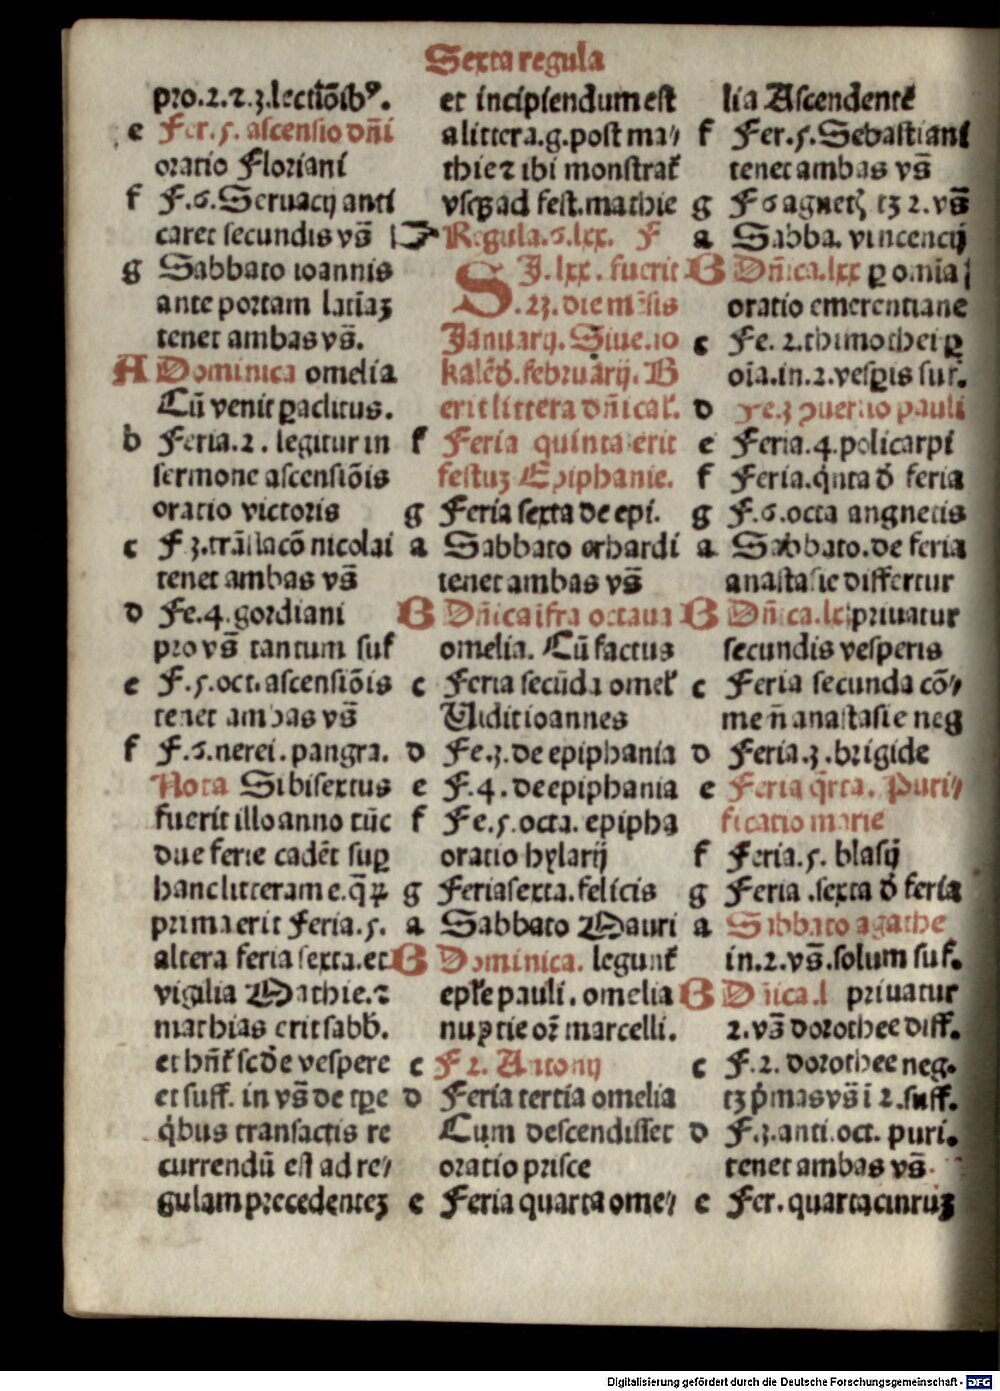 Sexta regula
pro.2.⁊.3.lectiōibꝰ.
e Fer.5. ascensio dn̄i
oratio Floriani
f F.6.Seruacij anti
caret secundis vs̄
g Sabbato ioannis
ante portam latiaʒ
tenet ambas vs̄.
A Dominica omelia
Cū venit ꝑaclitus.
b Feria.2. legitur in
sermone ascensiōis
oratio victoris
c F.3.trāslacō nicolai
tenet ambas vs̄
d Fe.4.gordiani
pro vs̄ tantum suf
e F.5.oct.ascensiōis
tenet ambas vs̄
f F.6.nerei.pangra.
Nota Si bisextus
fuerit illo anno tūc
due ferie cadēt suꝑ
hanc litteram e.q̄ꝝ
prima erit Feria.5.
altera feria sexta.et
vigilia Mathie.⁊
mathias erit sabb̄.
et hn̄t scd̄e vespere
et suff. in vs̄ de tp̄e
q̇bus transactis re
currendū est ad re⸗
gulam precedenteʒ
et incipiendum est
a littera.g.post ma⸗
thie ⁊ ibi monstrat̄
vsqʒ ad fest.mathie
☞ Regula.6.lxx. F
SI. lxx. fuerit
.23. die mēsis
Januarij. Siue.10
kalēd̄.februarij. B
erit littera dn̄ical̄.
f Feria quinta erit
festuʒ Epiphanie.
g Feria sexta de epi.
a Sabbato erhardi
tenet ambas vs̄
B Dn̄ica ifra octaua
omelia. Cū factus
c Feria secūda omel̄
Vidit ioannes
d Fe.3.de epiphania
e F.4.de epiphania
f Fe.5.octa. epipha
oratio hylarij
g Feria sexta.felicis
a Sabbato Mauri
B Dominica. legunt̄
ep̄le pauli. omelia
nuptie or̄ marcelli.
c F 2. Antonij
d Feria tertia omelia
Cum descendisset
oratio prisce
e Feria quarta ome⸗
lia Ascendente
f Fer.5.Sebastiani
tenet ambas vs̄
g F 6 agnetꝭ tʒ 2.vs̄
a Sabba. vincencij
B Dn̄ica.lxx ꝑ omīa
oratio emerentiane
c Fe. 2.thimothei ꝑ
oīa.in.2.vesꝑis suf.
d Fe.3 ↄuersio pauli
e Feria.4.policarpi
f Feria.qnta d̄ feria
g F.6.octa angnetis
a Sabbato.de feria
anastasie differtur
B Dn̄ica.lx priuatur
secundis vesperis
c Feria secunda cō⸗
me n̄ anastasie neg
d Feria.3.brigide
e Feria q̄rta. Puri⸗
ficatio marie
f Feria.5. blasij
g Feria .sexta d̄ feria
a Sabbato agathe
in.2.vs̄.solum suf.
B Dn̄ica.l priuatur
2.vs̄ dorothee diff.
c F.2. dorothee neg.
tʒ pͥmas vs̄ i 2.suff.
d F.3.anti.oct. puri.
tenet ambas vs̄.
e Fer. quarta cinruʒ
Digitalisierung gefördert durch die Deutsche Forschungsgemeinschaft - DFG